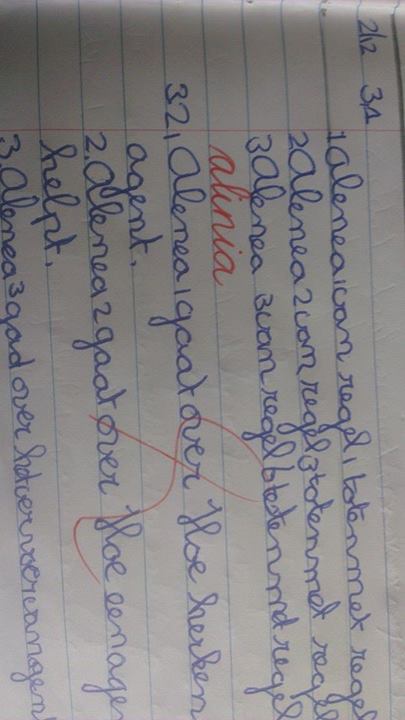 2/12 3,1
1 Alenea 1 van regel 1 tot en met regel
2 Alenea 2 van regel 3 tot en met regel
3 Alenea 3 van regel 6 tot en md regel
alinia
3 2, 1 Alenea 1 gaat over Hoe herken
agent.
2. Alenea 2 gaat over Hoe een agen
helpt.
3. Alenea 3 gad over het